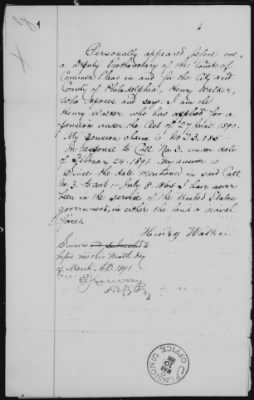 Personally appeared before me,
a Deputy Prothonotary of the Courts of
Common Pleas in and for the City and
County of Philadelphia, Henry Walker,
who deposes and says. I am the
Henry Walker who has applied for a
pension under the Act of 27 June 1890.
My claim is No
In response to Call No. 3. under date
of February 24. 1891 My answer is
Since the date mentioned in said Call
No. 3. to wit:- July 8. 1865 I have never
been in the service of the United States
government, in either the land or naval
force.
Henry Walker
Sworn
before me this day
of March A.D. 1891
PENSION OFFICE